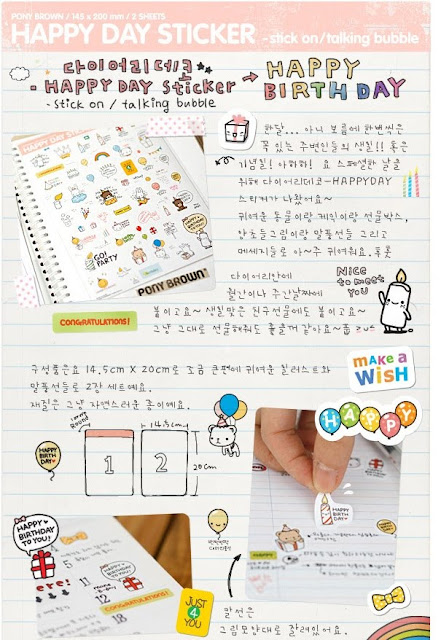 PONY BROWN / 145 x 200 mm / 2 SHEETS
HAPPY DAY STICKER - stick on / talking bubble
다이어리데코
- HAPPY DAY Sticker →
- stick on / talking bubble
HAPPY
BIRTHDAY
한달... 아니 보름에 한번씩은
꼭 있는 주변인들의 생일!! 혹은
기념일! 아하하! 요 스페셜한 날을
위해 다이어리데코-HAPPYDAY
스티커가 나왔어요~
귀여운 동물이랑 케익이랑 선물박스,
양초들그림이랑 말풍선들 그리고
메세지들로 아~주 귀여워요. 후훗
GO!
PARTY
PONY BROWN
다이어리안에
월간이나 주간날짜에
붙이고요~ 생일맞은 친구선물에도 붙이고요~
그냥 그대로 선물해줘도 좋을꺼 같아요~
NICE
to meet
YOU
CONGRATULATIONS!
구성품은요 14.5cm X 20cm로 조금 큰편에 귀여운 일러스트와
말풍선들로 2장 세트예요.
재질은 그냥 자연스러운 종이예요.
make a
WiSH
HAPPY
Round
14.5cm
1
2
20cm
HAPPY
BIRTH
DAY
HAPPY
BIRTH
DAY
HAPPY
BIRTHDAY
TO YOU!
HAPPY
BIRTHDAY
TO YOU!
CONGRATULATIONS!
5
11
12
18
HAPPY
JUST
4
YOU
말선은
그림모양대로 잘려있어요.